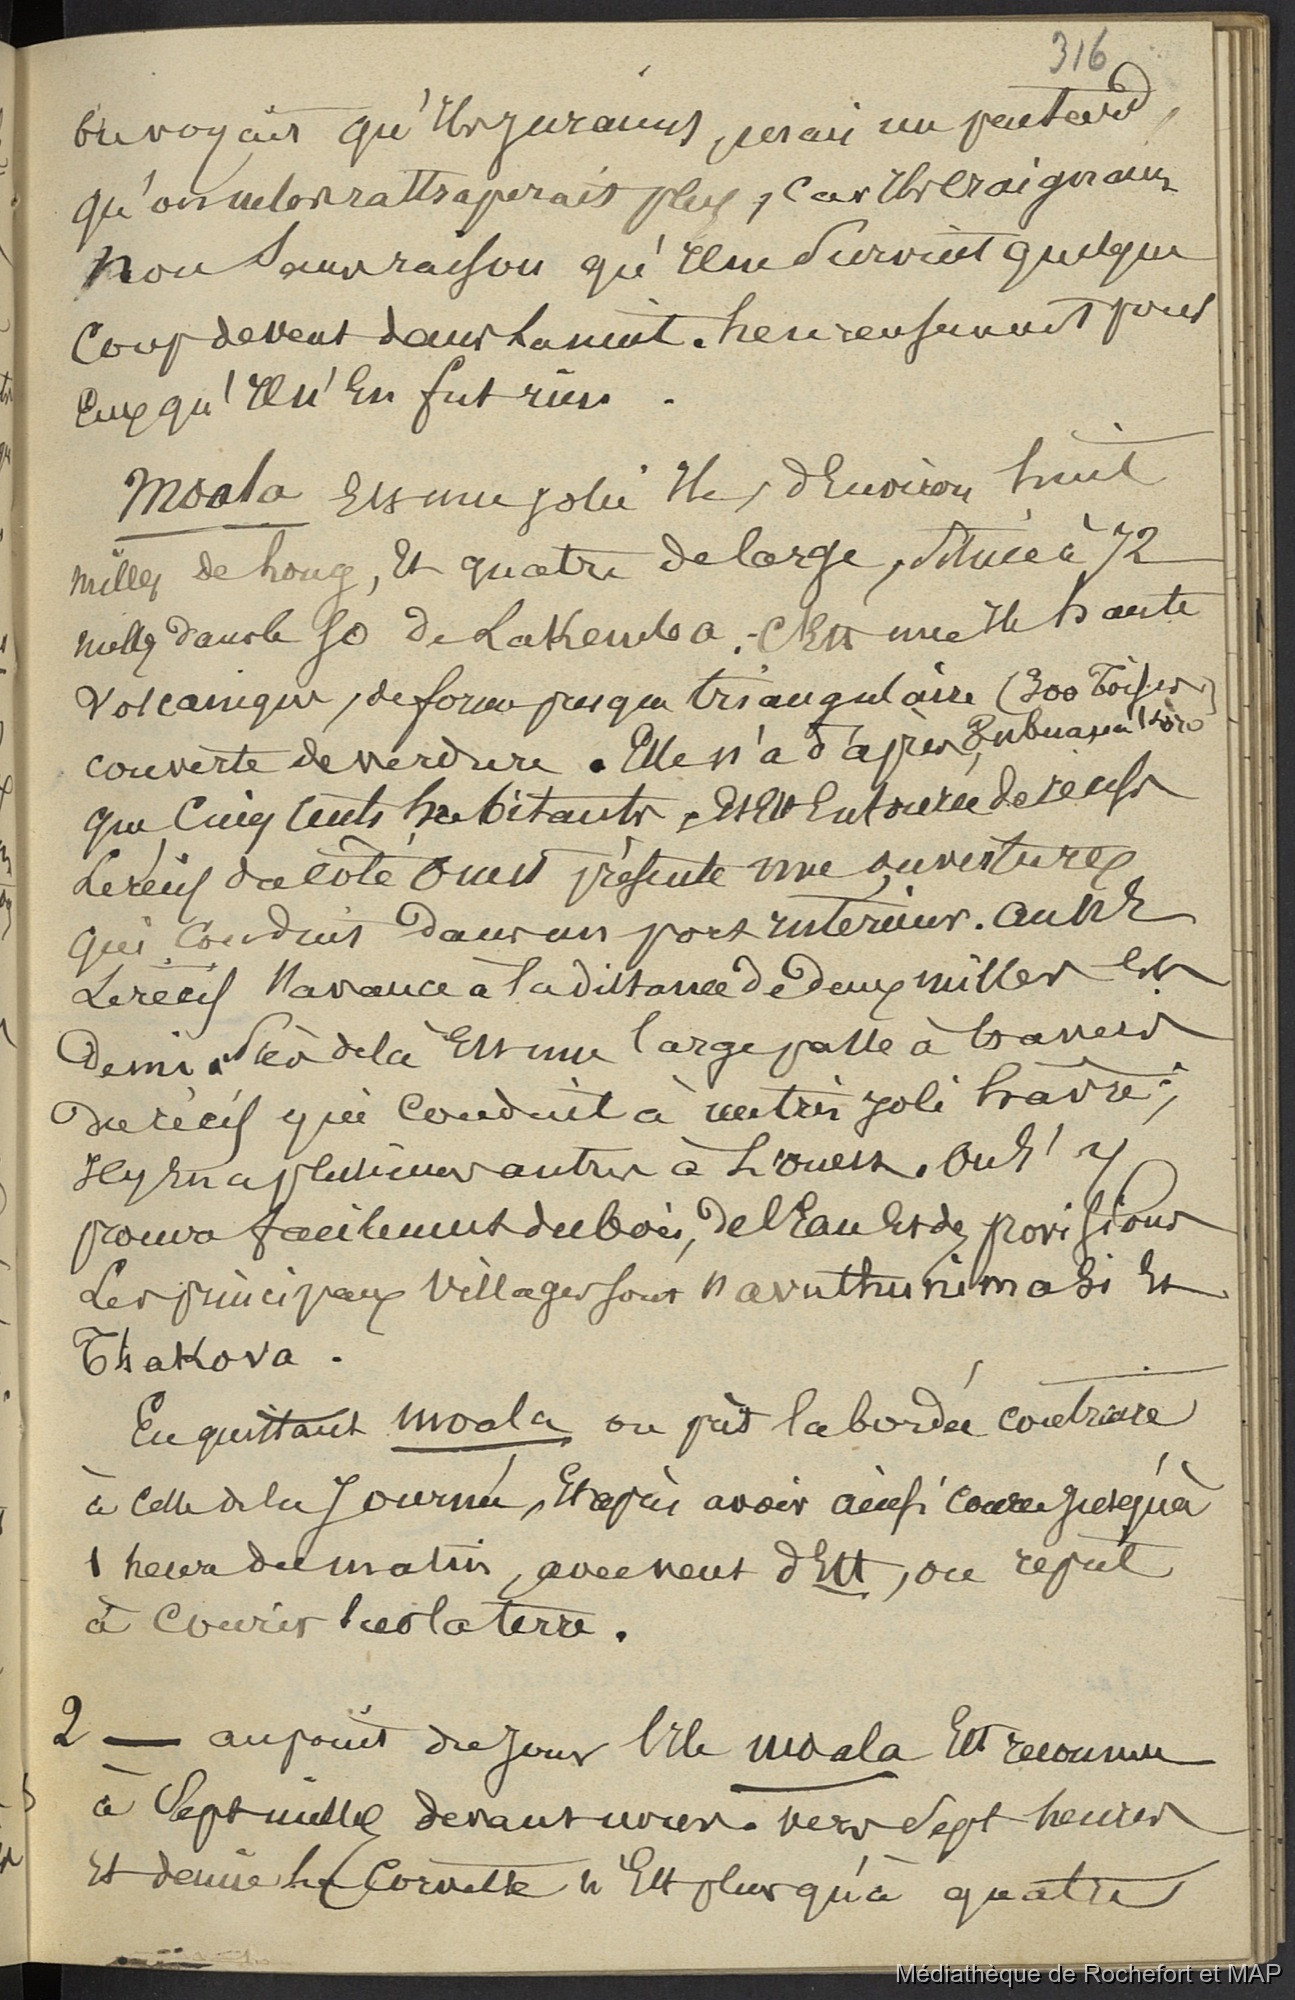 316
envoyait qu'ils juraient, mais un peu tard,
qu'on ne les rattraperait plus, car ils craignaient
non sans raison qu'il ne survint quelque
coup de vent dans la nuit. heureusement pour
Eux qu'il n'En fut rien.
Moala Est une jolie Ile, d'Environ huit
milles de long, Et quatre de large, située à 72
milles dans le SO de Lakemba. C'Est une Ile haute
Volcanique, de forme presque triangulaire (300 Toises)
couverte de verdure. Elle n'a d'après
que Cinq Cents habitants, Et Est Entourée de récifs
Le récif du côté Ouest présente une ouverture
qui conduit dans un port intérieur. au NE
Le récif s'avance à la distance de deux milles Et
Demi. près de là Est une large passe à travers
du récif qui Conduit à un très joli hâvre;
Il y En a plusieurs autres à L'ouest. On s'y
procure facilement du bois, de l'Eau Et des provisions
Les principaux Villages sont Navuthunimasi Et
Thakova.
En quittant Moala on prit la bordée contraire
à celle de la Journée, Et après avoir ainsi couru jusqu'à
1 heure du matin, avec vent d'Est, on reprit
à Courir sur la terre.
2 — au point du jour l'Ile Moala Est reconnue
à Sept milles devant nous. vers Sept heures
Et demie la Corvette n'Est plus qu'à quatre
Médiathèque de Rochefort et MAP